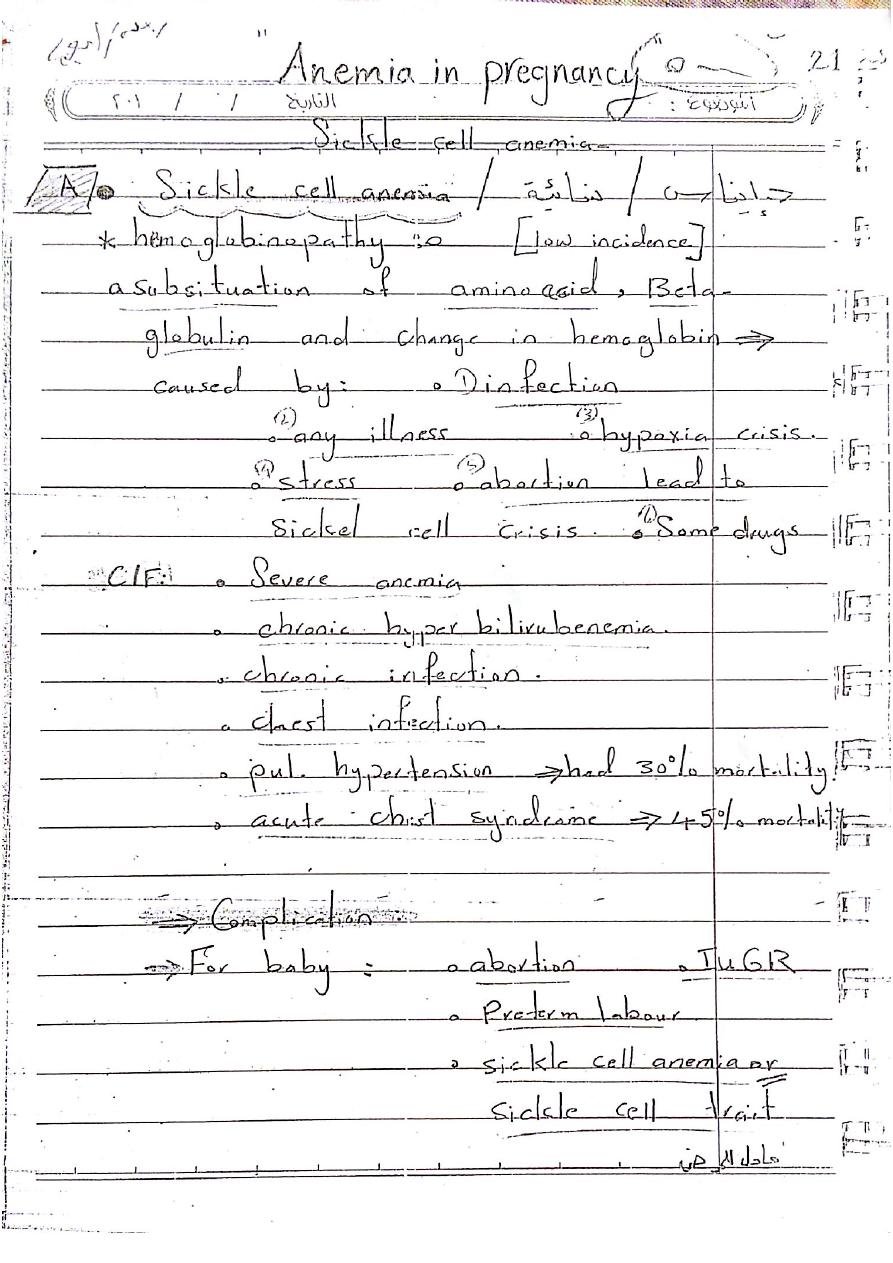 Anemia in pregnancy
21
الموضوع : التاريخ / / ٢٠١
Sickle cell anemia
A Sickle cell anemia /
* hemoglobinopathy :- [low incidence]
a subsituation of amino acid, Beta-
globulin and change in hemoglobin ⇒
caused by: ① infection
(2) any illness (3) hypoxia crisis.
(4) stress (5) abortion lead to
Sickel cell crisis. (6) Some drugs
C/F: • Severe anemia
• chronic hyper bilirubenemia.
• chronic infection.
• chest infection.
• pul. hypertension ⇒ had 30% mortility
• acute chist syndrome ⇒ 45% mortality
⇒ Complication
⇒ For baby : • abortion • IUGR
• Preterm labour
• sickle cell anemia or
sickle cell trait
حامل المرض